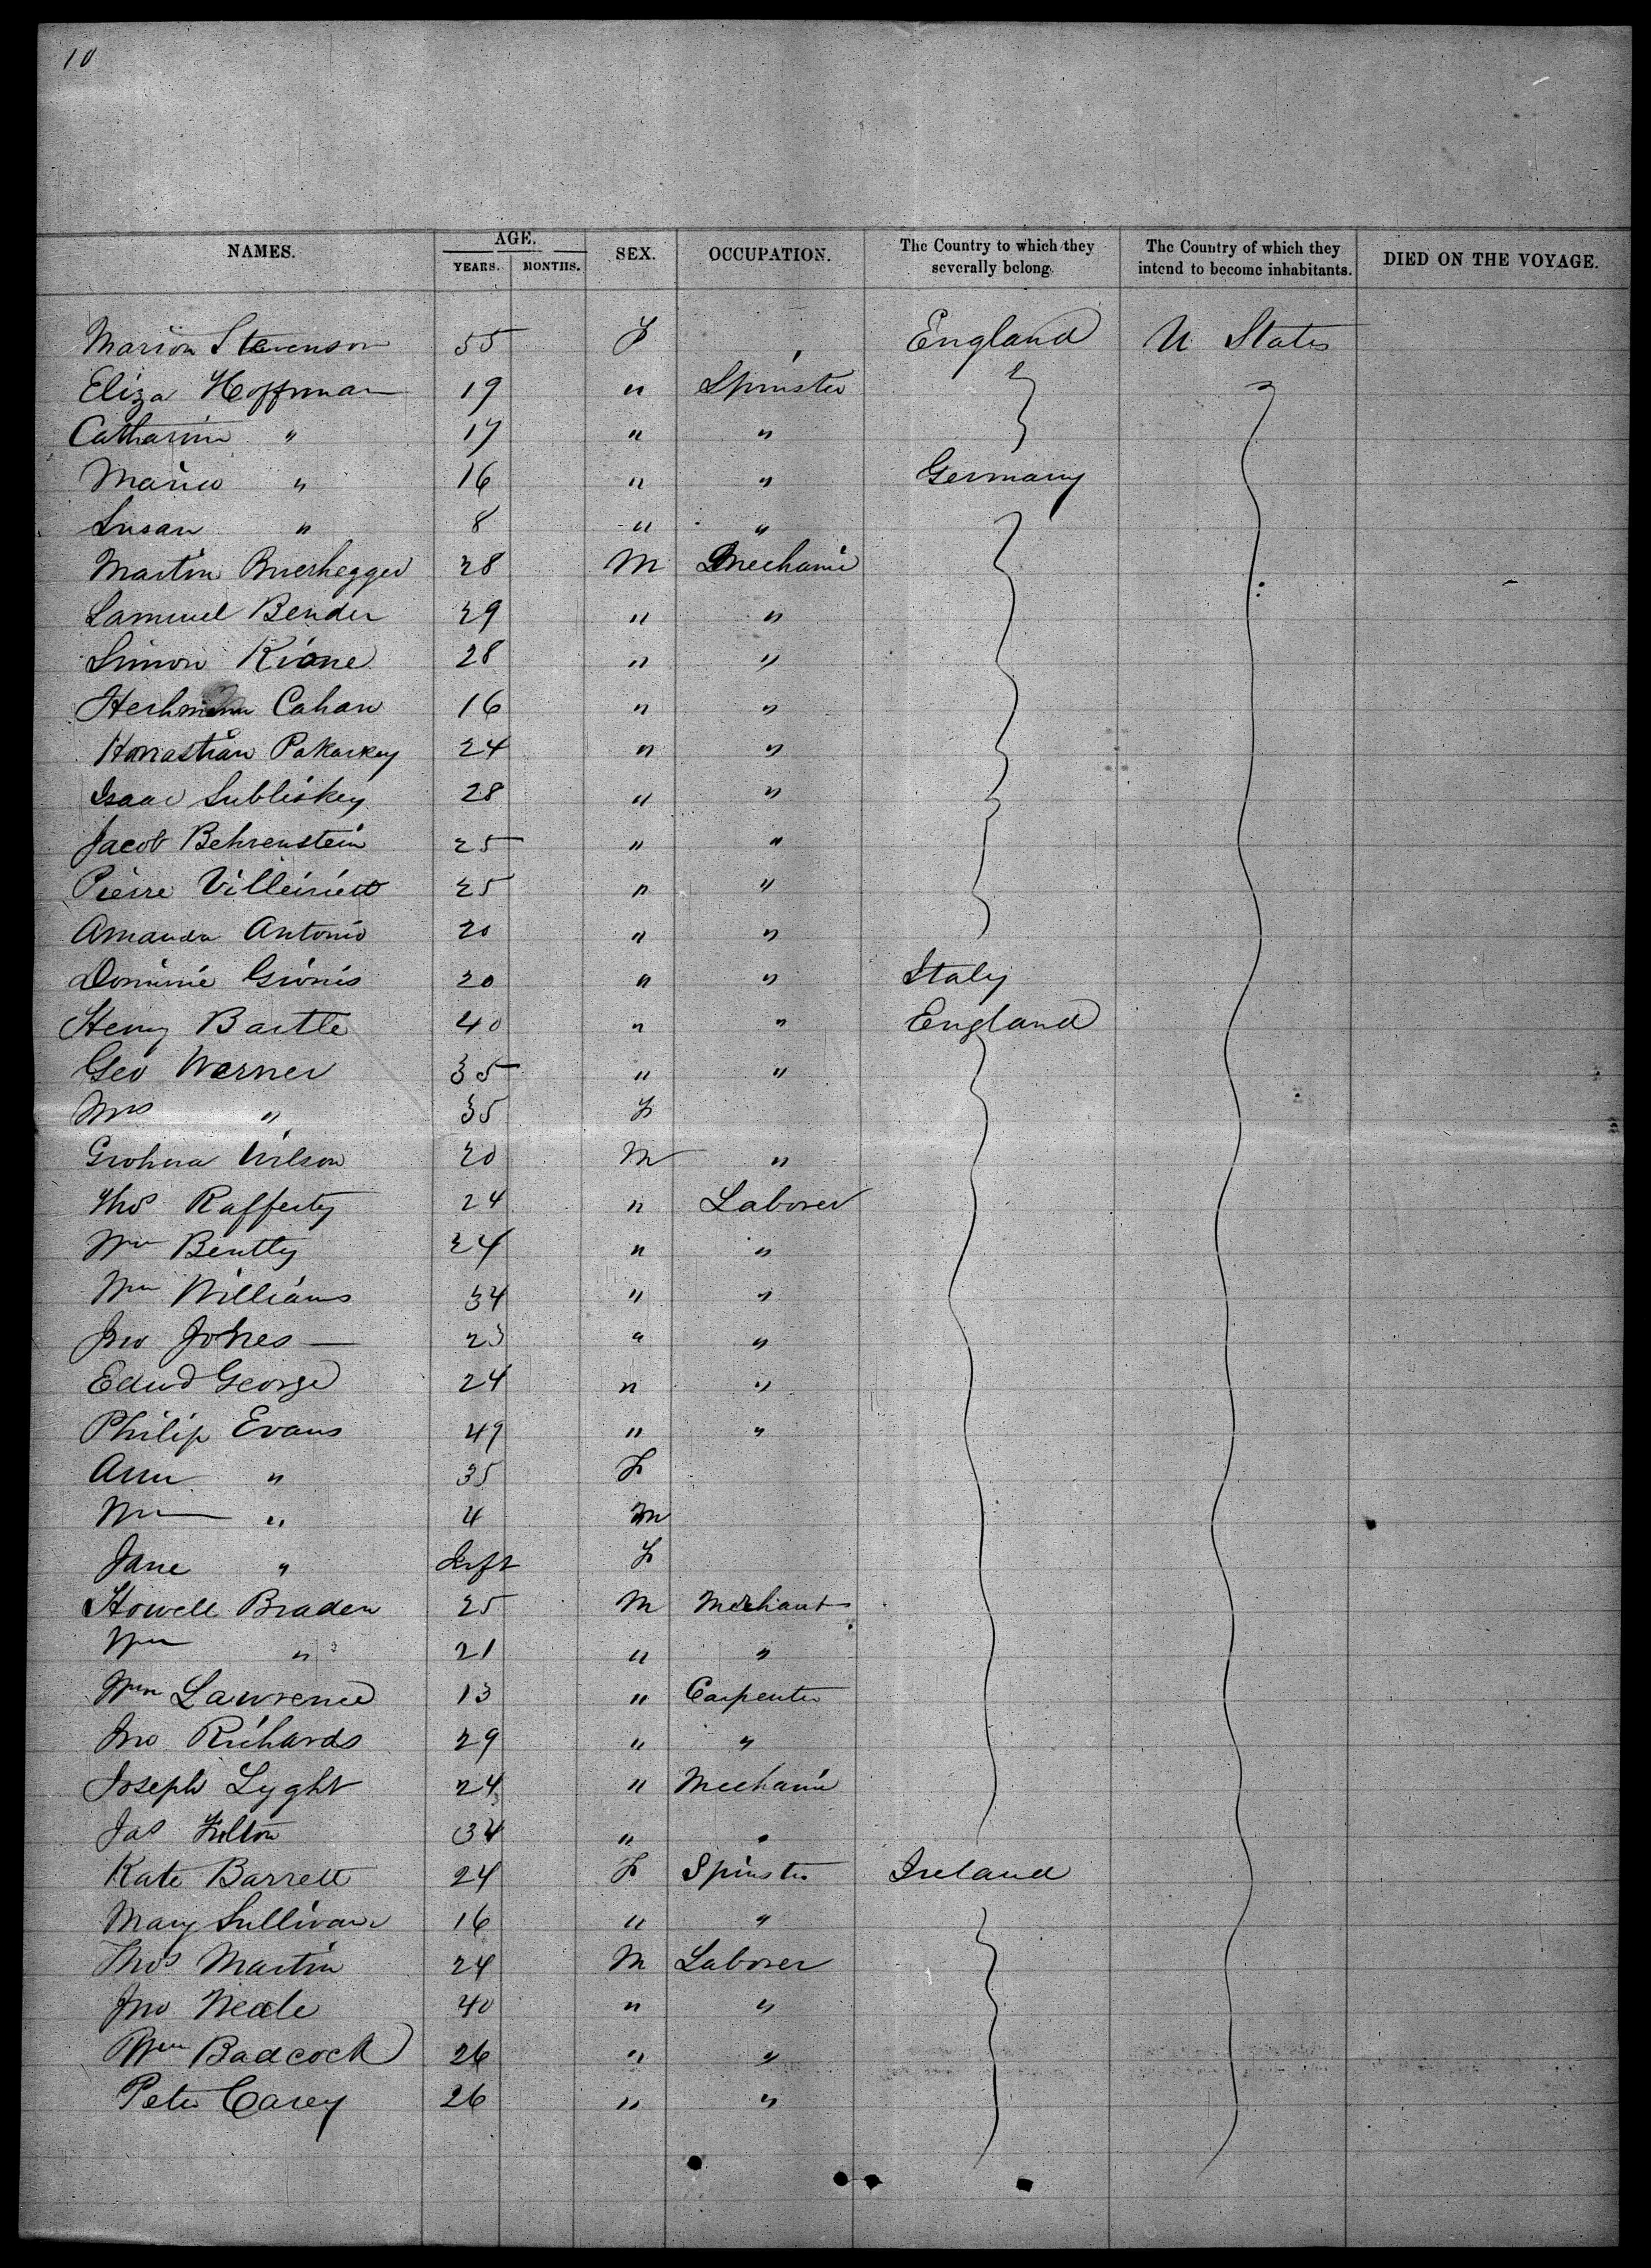 10
NAMES. AGE. YEARS. MONTHS. SEX. OCCUPATION. The Country to which they severally belong. The Country of which they intend to become inhabitants. DIED ON THE VOYAGE.
Marion Stevenson 55 F England U States
Eliza Hoffman 19 " Spinster
Catharine " 17 " "
Marie " 16 " " Germany
Susan " 8 " "
Martin 28 M Mechanic
Samuel Bender 29 " "
Simon Kione 28 " "
Cahan 16 " "
Pakarkey 24 " "
Isaac Subliskey 28 " "
Jacob Behrenstein 25 " "
Pierre 25 " "
Amanda Antonio 20 " "
Dominic Gionis 20 " " Italy
Henry Bartle 40 " " England
Geo Warner 35 " "
Mrs " 35 F
Wilson 20 M "
Thos Rafferty 24 " Laborer
Wm Bentty 24 " "
Wm Williams 34 " "
Jno Jones 23 " "
Edwd George 24 " "
Philip Evans 49 " "
Ann " 35 F
Wm " 4 M
Jane " Inft F
Howell Braden 25 M Merchant
Wm " 21 " "
Wm Lawrence 13 " Carpenter
Jno Richards 29 " "
Joseph Lyght 24 " Mechanic
Jas Fulton 34 " "
Kate Barrett 24 F Spinster Ireland
Mary Sullivan 16 " "
Thos Martin 24 M Laborer
Jno Neale 40 " "
Wm Badcock 26 " "
Peter Carey 26 " "